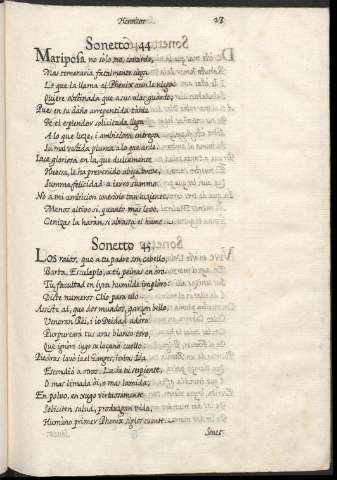 Heroicos. 23
Sonetto 44
Mariposa no solo no, cobarde,
Mas temeraria fatalmente ciega
Lo que la llama al Phenix aun le niega
Quiere obstinada que a sus alas guarde,
Pues en su daño arrepentida tarde
De el esplendor solicitada llega
A lo que luze, i ambiciosa entrega
Su mal vestida pluma a lo que arde
Iace gloriosa en la que dulcemente
Huesa le ha prevenido abeja breve,
Summa felicidad a ierro summo
No a mi ambicion contrario tan luziente,
Menos activo si, quanto mas leve,
Cenizas la hara, si abrasa el humo
Sonetto 45
Los raios, que a tu padre son cabello,
Barba, Esculapio, a ti, peinas en oro
Tu facultad en lyra humilde imploro
Dicte numeros Clio para ello
Asiste al, que dos mundos, garçon bello,
Veneran Rei, i io Deidad adoro
Purpureará tus aras blanco toro,
Que ignore iugo su loçano cuello
Piedras lavó ia el Ganges, ierbas Ida
Escondió a otros La de tu serpiente,
O mas limada oi, o mas lamida;
En polvo, en xugo virtuosamente
Soliciten salud, produzgan vida,
Humano primer Phenix siglos cuente
Sones